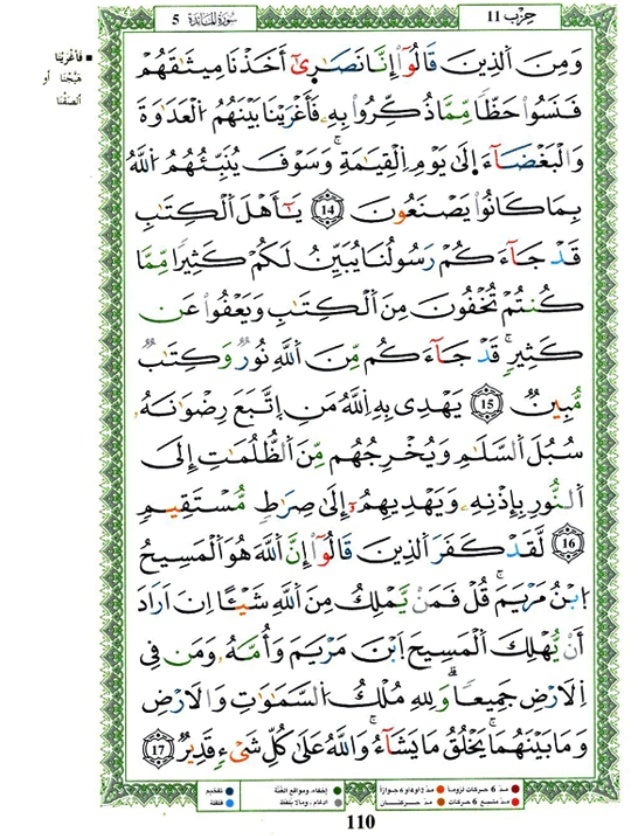 حزب 11
سورة المائدة 5
وَمِنَ اَ۬لذِينَ قَالُوٓاْ إِنَّا نَصَٰر۪ىٰٓ أَخَذْنَا مِيثَٰقَهُمْ
فَنَسُواْ حَظّاٗ مِّمَّا ذُكِّرُواْ بِهِۦ فَأَغْرَيْنَا بَيْنَهُمُ اُ۬لْعَدَاوَةَ
وَالْبَغْضَآءَ اِ۪لَىٰ يَوْمِ اِ۬لْقِيَٰمَةِۖ وَسَوْفَ يُنَبِّئُهُمُ اُ۬للَّهُ
بِمَا كَانُواْ يَصْنَعُونَ 14 يَٰٓأَهْلَ اَ۬لْكِتَٰبِ
قَدْ جَآءَكُمْ رَسُولُنَا يُبَيِّنُ لَكُمْ كَثِيراٗ مِّمَّا
كُنتُمْ تُخْفُونَ مِنَ اَ۬لْكِتَٰبِ وَيَعْفُواْ عَن
كَثِيرٖۖ قَدْ جَآءَكُم مِّنَ اَ۬للَّهِ نُورٞ وَكِتَٰبٞ
مُّبِينٞ 15 يَهْدِي بِهِ اِ۬للَّهُ مَنِ اِ۪تَّبَعَ رِضْوَٰنَهُۥ
سُبُلَ اَ۬لسَّلَٰمِ وَيُخْرِجُهُم مِّنَ اَ۬لظُّلُمَٰتِ إِلَى
اَ۬لنُّورِ بِإِذْنِهِۦ وَيَهْدِيهِمُۥٓ إِلَىٰ صِرَٰطٖ مُّسْتَقِيمٖ
16 لَّقَدْ كَفَرَ اَ۬لذِينَ قَالُوٓاْ إِنَّ اَ۬للَّهَ هُوَ اَ۬لْمَسِيحُ
اُ۪بْنُ مَرْيَمَۖ قُلْ فَمَنْ يَّمْلِكُ مِنَ اَ۬للَّهِ شَيْـٔاً اِنَ اَرَادَ
أَنْ يُّهْلِكَ اَ۬لْمَسِيحَ اَ۪بْنَ مَرْيَمَ وَأُمَّهُۥ وَمَن فِي
اِ۬لَارْضِ جَمِيعاٗۖ وَلِلهِ مُلْكُ اُ۬لسَّمَٰوَٰتِ وَالَارْضِ
وَمَا بَيْنَهُمَاۖ يَخْلُقُ مَا يَشَآءُۖ وَاللَّهُ عَلَىٰ كُلِّ شَيْءٖ قَدِيرٞ 17
فَأغْرَيْنَا
هَيَّجْنَا أو
ألصَقْنَا
مدّ 6 حركات لزوماً
مدّ 2 أو 4 أو 6 جوازاً
إخفاء، ومواقع الغنّة
تفخيم
مدّ مشبع 6 حركات
مدّ حركتان
ادغام، وما لا يُلفظ
قلقلة
110